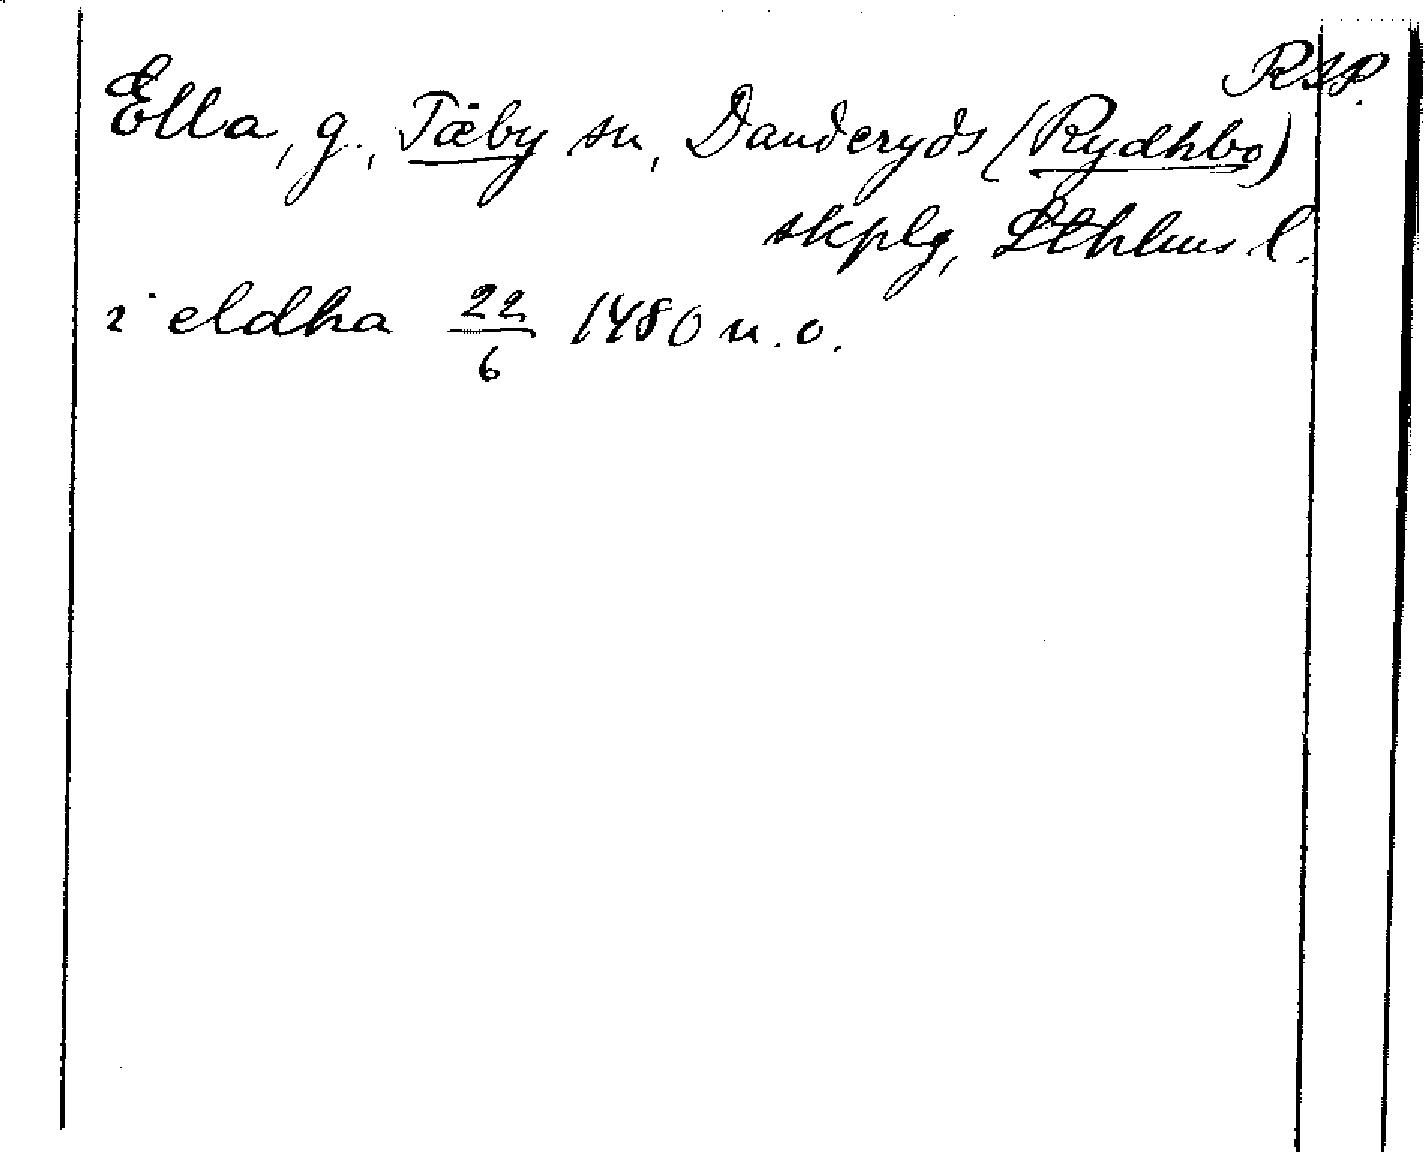 RAP.
Ella, g., Täby sn, Danderyds (Rydhbo)
skplg, Sthlms l.
i eldha 22/6 1480 n.o.